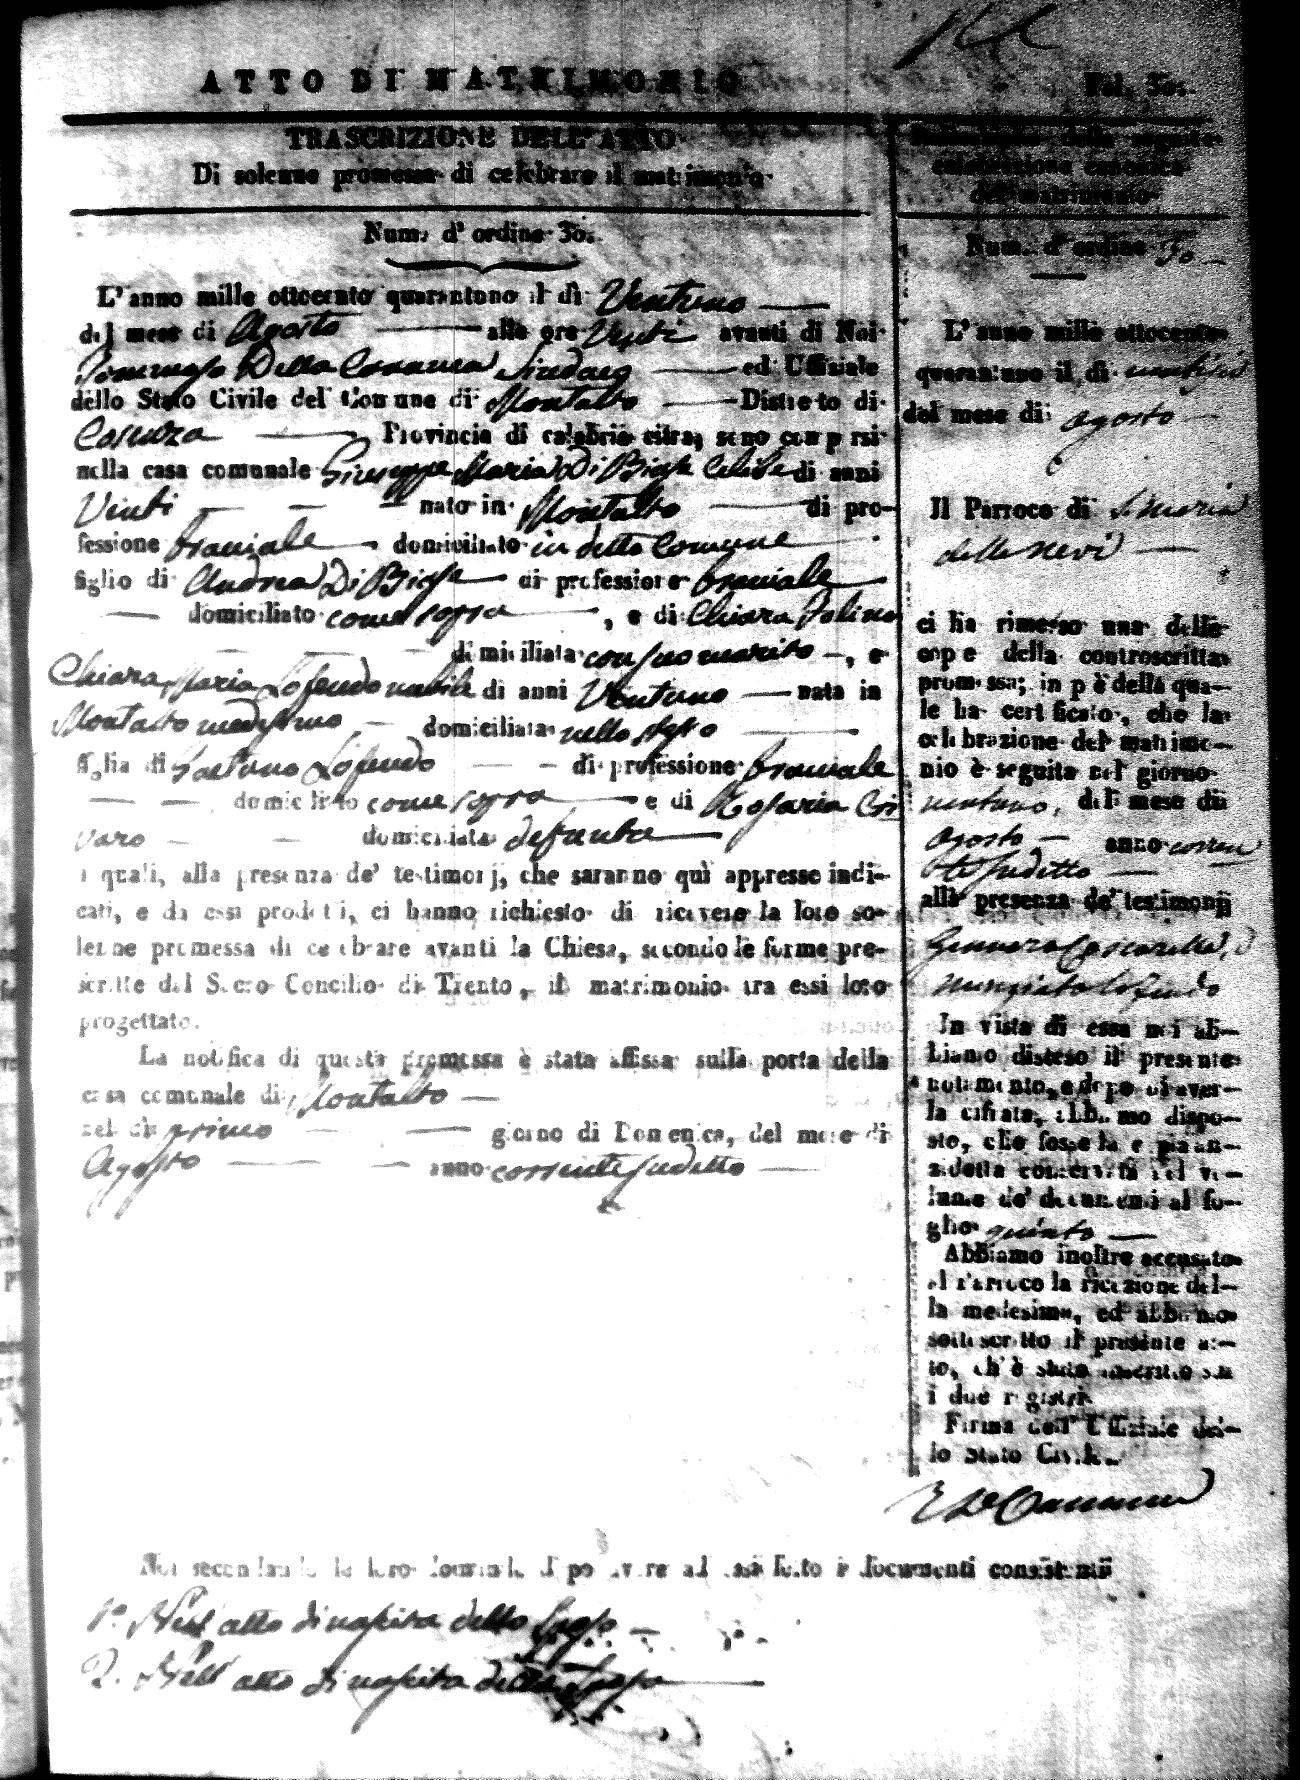 ATTO DI MATRIMONIO
Fol. 30.
TRASCRIZIONE DELL'ATTO
Di solenne promessa di celebrare il matrimonio
Num. d'ordine 30.
L'anno mille ottocento quarantuno il dì Ventuno
del mese di Agosto alle ore Venti avanti di Noi
Tommaso Della Sindaco ed Uffiziale
dello Stato Civile del Comune di Montalto Distretto di
Cosenza Provincia di calabria citra, sono comparsi
nella casa comunale Giuseppe Maria Di Biase Celibe di anni
Venti nato in Montalto di pro-
fessione bracciale domiciliato in detto Comune
figlio di Andrea Di Biase di professione bracciale
domiciliato come sopra, e di Chiara
domiciliata con suo marito, e
Chiara Maria Lofendo nubile di anni Ventuno nata in
Montalto medesimo domiciliata nello stesso
figlia di Gaetano Lofendo di professione bracciale
domiciliato come sopra e di Rosaria Cri
varo domiciliata defunta
i quali, alla presenza de' testimonj, che saranno quì appresso indi-
cati, e da essi prodotti, ci hanno richiesto di ricevere la loro so-
lenne promessa di celebrare avanti la Chiesa, secondo le forme pre-
scritte dal Sacro Concilio di Trento, il matrimonio tra essi loro
progettato.
La notifica di questa promessa è stata affissa sulla porta della
casa comunale di Montalto
nel dì primo giorno di Domenica, del mese di
Agosto anno corrente sudetto
della seguita
celebrazione canonica
del matrimonio
Num. d'ordine 30
L'anno mille ottocento
quarantuno il dì
del mese di agosto
Il Parroco di S. Maria
della Nevi
ci ha rimesso una delle
copie della controscritta
promessa; in piè della qua-
le ha certificato, che la
celebrazione del matrimo-
nio è seguita nel giorno
ventuno, del mese di
agosto anno corren
te sudetto
alla presenza de' testimonj
Gennaro
Nunziato Lofendo
In vista di essa noi ab-
biamo disteso il presente
notamento, e dopo di aver-
la cifrata, abbiamo dispo-
sto, che fosse la copia an-
zidetta conservata nel vo-
lume de' documenti al fo-
glio quinto
Abbiamo inoltre accusato
al Parroco la ricezione del-
la medesima, ed abbiamo
sottoscritto il presente at-
to, ch'è stato inscritto su
i due registri
Firma dell'Uffiziale del-
lo Stato Civile.
Noi secondando la loro domanda dopo avere ad essi letto i documenti consistenti
1º. Nell'atto di nascita dello Sposo
2. Nell'atto di nascita della Sposa